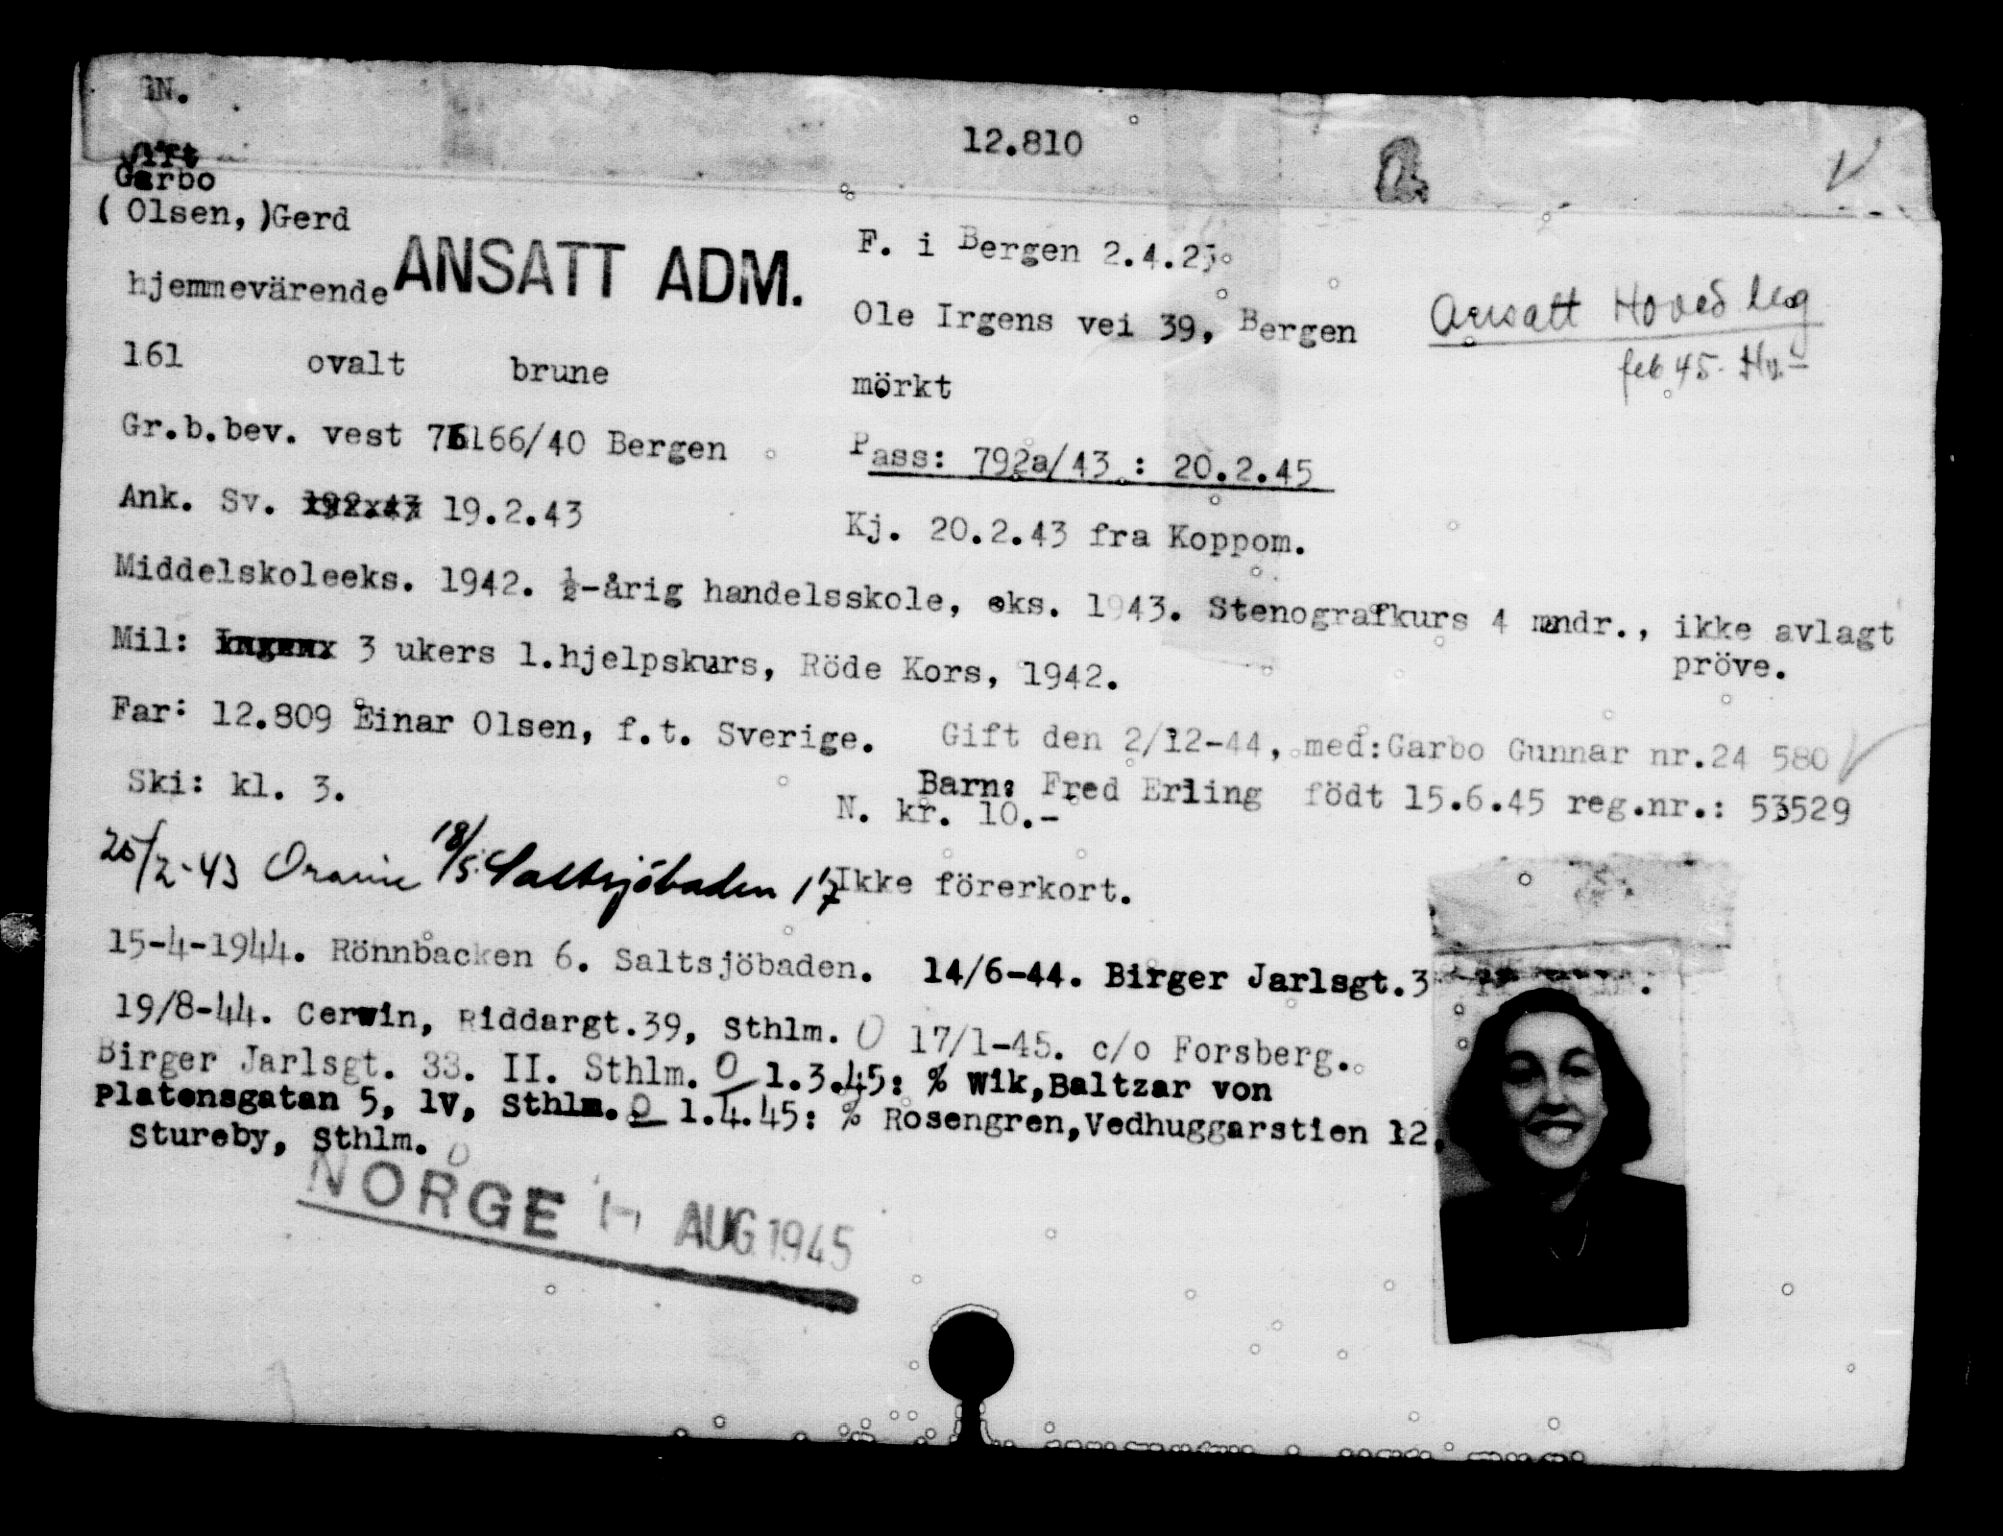 GN.
12.810
Gift
Garbo
( Olsen, )Gerd
F. i Bergen 2.4.25
hjemmevärende
ANSATT ADM.
Ole Irgens vei 39, Bergen
Ansatt Hoved leg
feb 45. Hv.-
161 ovalt brune
mörkt
Gr.b.bev. vest 76166/40 Bergen
Pass: 792a/43 : 20.2.45
Ank. Sv. 19.2.43
Kj. 20.2.43 fra Koppom.
Middelskoleeks. 1942. ½-årig handelsskole, eks. 1943. Stenografkurs 4 mndr., ikke avlagt
pröve.
Mil: 3 ukers 1.hjelpskurs, Röde Kors, 1942.
Far: 12.809 Einar Olsen, f.t. Sverige.
Gift den 2/12-44, med:Garbo Gunnar nr.24 580
Ski: kl. 3.
Barn: Fred Erling födt 15.6.45 reg.nr.: 53529
N. kr. 10.-
25/2-43 18/5. Saltsjöbaden 1/7
Ikke förerkort.
15-4-1944. Rönnbacken 6. Saltsjöbaden. 14/6-44. Birger Jarlsgt.3
19/8-44. Cerwin, Riddargt.39, Sthlm. 0 17/1-45. c/o Forsberg.
Birger Jarlsgt. 33. II. Sthlm. 0 1.3.45: % Wik,Baltzar von
Platensgatan 5, 1V, Sthlm. 0 1.4.45: % Rosengren,Vedhuggarstien 12,
Stureby, Sthlm. 0
NORGE AUG 1945